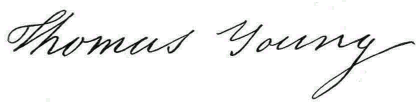 Thomas Young